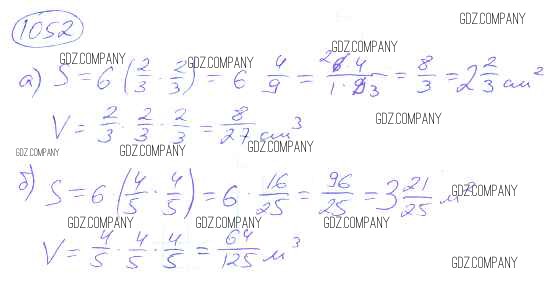 1052
GDZ.COMPANY
GDZ.COMPANY
GDZ.COMPANY GDZ.COMPANY
а) S = 6 (2/3 · 2/3) = 6 4/9 = 2 6 · 4 / 1 · 9 3 = 8/3 = 2 2/3 см²
GDZ.COMPANY
V = 2/3 · 2/3 · 2/3 = 8/27 см³
GDZ.COMPANY GDZ.COMPANY GDZ.COMPANY
б) S = 6 (4/5 · 4/5) = 6 · 16/25 = 96/25 = 3 21/25 м²
GDZ.COMPANY
GDZ.COMPANY GDZ.COMPANY GDZ.COMPANY
V = 4/5 · 4/5 · 4/5 = 64/125 м³
GDZ.COMPANY